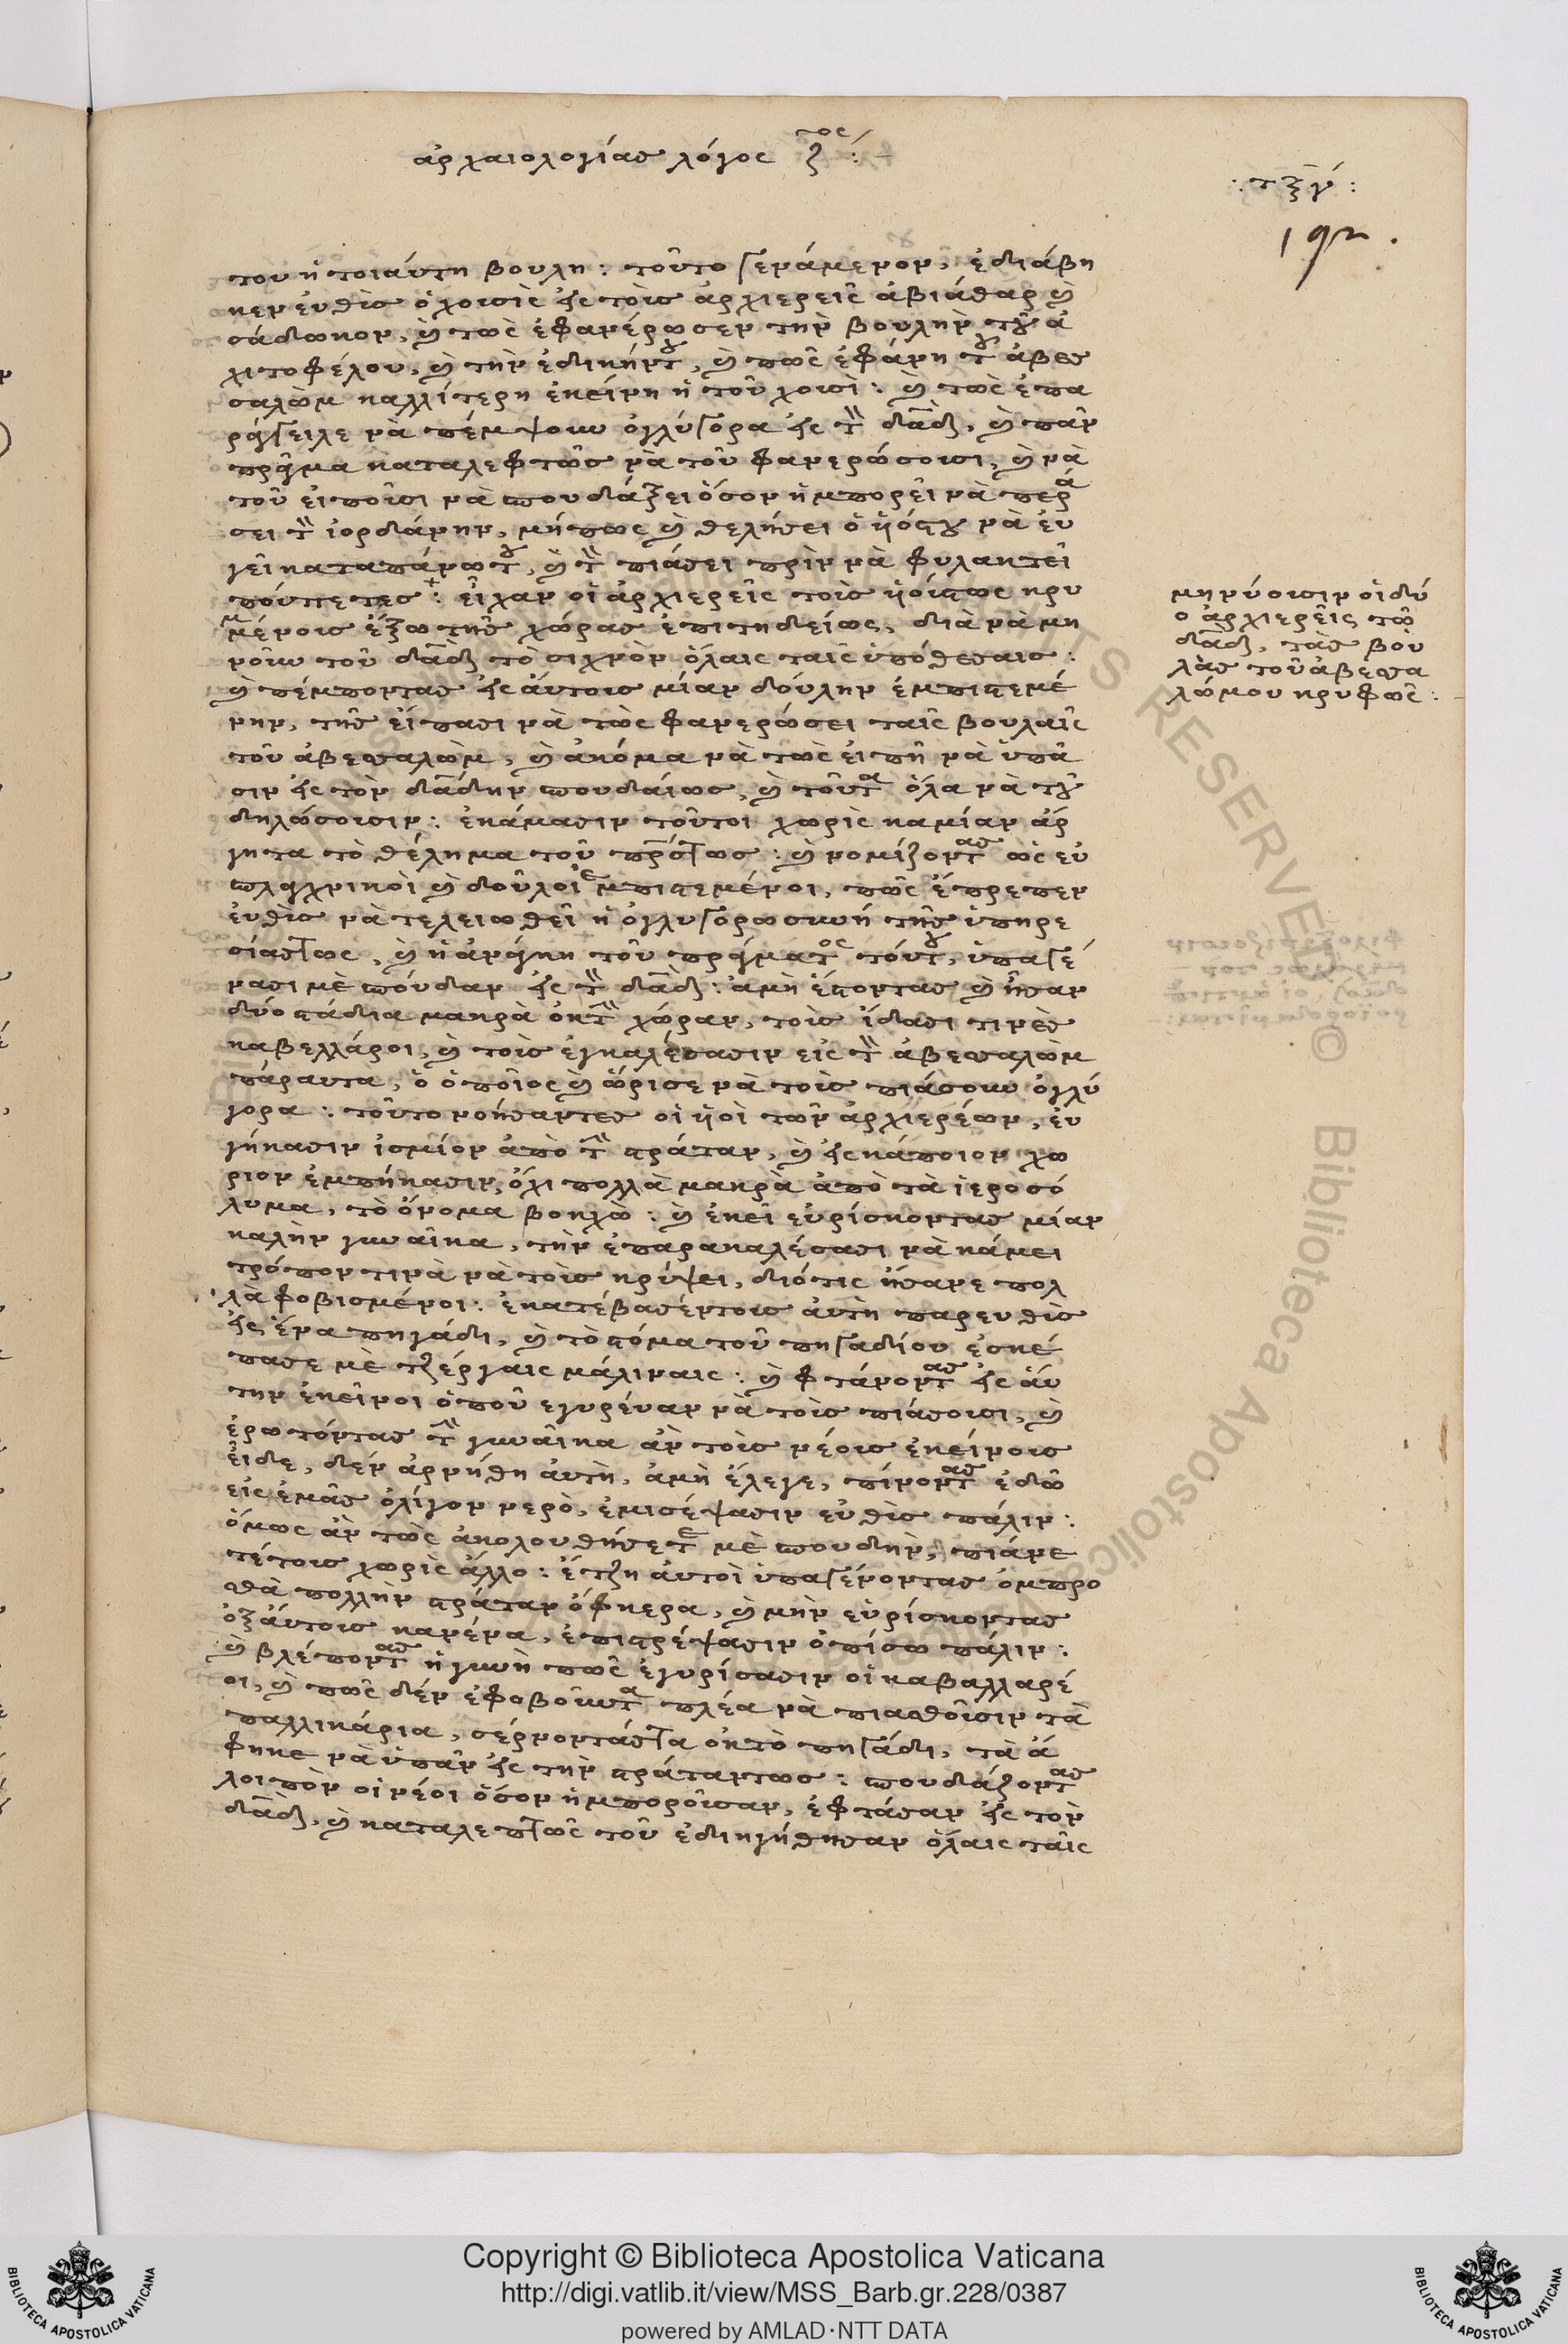 ἀρχαιολογίας λόγος ζ τος :
: τξγ :
192.
του ἡ τοιάυτη βουλη : τοῦτο γενάμενον, ἐδιάβη
κεν ἐυθὶς ὁ χουσὶς εἰς τοὶς ἀρχιερεῖς ἀβιάθαρ ϗ
σάδωκον, ϗ τοὺς ἐφανέρωσεν τὴν βουλὴν τοῦ ἀ
χιτοφέλου, ϗ τὴν ἐδικήν του, ϗ πῶς ἐφάνη τοῦ ἀβεσ
σαλὼμ καλλίτερη ἐκείνη ἡ τοῦ χουσὶ : ϗ τοὺς ἐπα
ράγγειλε νὰ πέμψουν ὀγλύγορα εἰς τὸν δαδ, ϗ πᾶν
πράγμα καταλεφτῶς νὰ τοῦ φανερώσουσι, ϗ νὰ
τοῦ εἰποῦσι νὰ σπουδάξει ὅσον ἠμπορεῖ νὰ περά
σει τὸν ἰορδάνην, μήπως ϗ θελήσει ὁ ἡόςτου νὰ ἐυ
γεῖ καταπάνωτου, ϗ τὸν πιάσει πρὶν νὰ φυλακτεῖ
πούπετες : εἶχαν οἱ ἀρχιερεῖς τοὶς ἡοίςτως κρυ
μμένοις ἔξω τῆς χώρας ἐπιτηδείως, διὰ νὰ μη
νοῦν τοῦ δαδ τὸ συχνὸν ὅλαις ταῖς ὑπόθεσαις :
ϗ πέμποντας εἰς ἄυτοις μίαν δούλην ἐμπιστεμέ
νην, τῆς εἴπασι νὰ τοὺς φανερώσει ταῖς βουλαῖς
τοῦ ἀβεσσαλὼμ, ϗ ἀκόμα νὰ τοὺς εἰπῆ νὰ ὑπᾶ
σιν εἰς τὸν δάδην σπουδαίως, ϗ τοῦτα ὅλα νὰ τοῦ
δηλώσουσιν : ἐκάμασιν τοῦτοι χωρὶς καμίαν ἀρ
γητα τὸ θέλημα τοῦ πρός τως : ϗ νομίζοντας ὡς ἐυ
σπλαγχνικοὶ ϗ δοῦλοι ἐμπιστεμένοι, πῶς ἔπρεπεν
ἐυθὶς νὰ τελειωθεῖ ἡ ὀγλυγοροσυνή τῆς ὑπηρε
σίας τως, ϗ ἡ ἀνάγκη τοῦ πράγματος τούτου, ὑπαγέ
νασι μὲ σπούδαν εἰς τὸν δαδ : ἀμὴ ἔστοντας ϗ ἦσαν
δύο στάδια μακρὰ ὀκτὴν χώραν, τοὶς ἴδασι τινὲς
καβελλάροι, ϗ τοὶς ἐγκαλέσασιν εἰς τὸν ἀβεσσαλὼμ
πάραυτα, ὁ ὁποῖος ϗ ὥρισε νὰ τοὶς πιάσουν ὀγλύ
γορα : τοῦτο νοήσαντες οἱ ἡοὶ τῶν ἀρχιερέων, ἐυ
γήκασιν ἰσμίον ἀπὸ τὴν στράταν, ϗ εἰς κάποιον χω
ριον ἐμπήκασιν, ὄχι πολλὰ μακρὰ ἀπὸ τὰ ἱεροσό
λυμα, τὸ ὄνομα βοκχὼ : ϗ ἐκεῖ εὑρίσκοντας μίαν
καλὴν γυναῖκα, τὴν ἐπαρακαλέσασι νὰ κάμει
τρόπον τινὰ νὰ τοὶς κρύψει, διότις ἤσανε πολ
λὰ φοβισμένοι : ἐκατέβασέντοις ἀυτὴ παρευθὶς
εἰς ἕνα πηγάδι, ϗ τὸ στόμα τοῦ πηγαδίου ἐσκέ
πασε μὲ τζέργαις μάλιναις : ϗ φτάνοντας εἰς ἀύ
την ἐκεῖνοι ὁποῦ εγυρέυαν νὰ τοὶς πιάσουσι, ϗ
ἐρωτόντας τὴν γυναῖκα ἀν τοὶς νέοις ἐκείνοις
εἶδε, δὲν ἀρνήθη ἀυτὴ, ἀμὴ ἔλεγε, πίνοντας ἐδῶ
εἰς ἐμᾶς ὀλίγον νερὸ, ἐμισέψασιν εὐθὶς πάλιν :
ὅμως ἀν τοὺς ἀκολουθήσετε μὲ σπουδὴν, πιάνε
τέτοις χωρὶς ἄλλο : ἔτζη ἀυτοὶ ὑπαγένοντας ὀμπρο
σθὰ πολλὴν στράταν ὄφκερα, ϗ μὴν εὑρίσκοντας
ὀξάυτοις κανένα, ἐπιστρέψασιν ὀπίσω πάλιν :
ϗ βλέποντας ἡ γυνὴ πῶς ἐγυρίσασιν οἱ καβαλλαρέ
οι, ϗ πῶς δὲν ἐφοβοῦντα πλέα νὰ πιασθοῦσιν τὰ
παλλικάρια, σέρνοντάς τα ὀκτὸ πηγάδι, τὰ ἄ
φηκε νὰ ὑπᾶν εἰς τὴν στράταντως : σπουδάζοντας
λοιπὸν οἱ νέοι ὅσον ἠμποροῦσαν, ἐφτάσαν εἰς τὸν
δαδ, ϗ καταλεπτῶς τοῦ ἐδιηγήθησαν ὅλαις ταῖς
μηνύουσιν οἱ δύ
ο ἀρχιερεῖς τῶ
δαδ, τὰς βου
λὰς τοῦ ἀβεσσα
λώμου κρυφῶς :
Copyright © Biblioteca Apostolica Vaticana
http://digi.vatlib.it/view/MSS_Barb.gr.228/0387
powered by AMLAD·NTT DATA